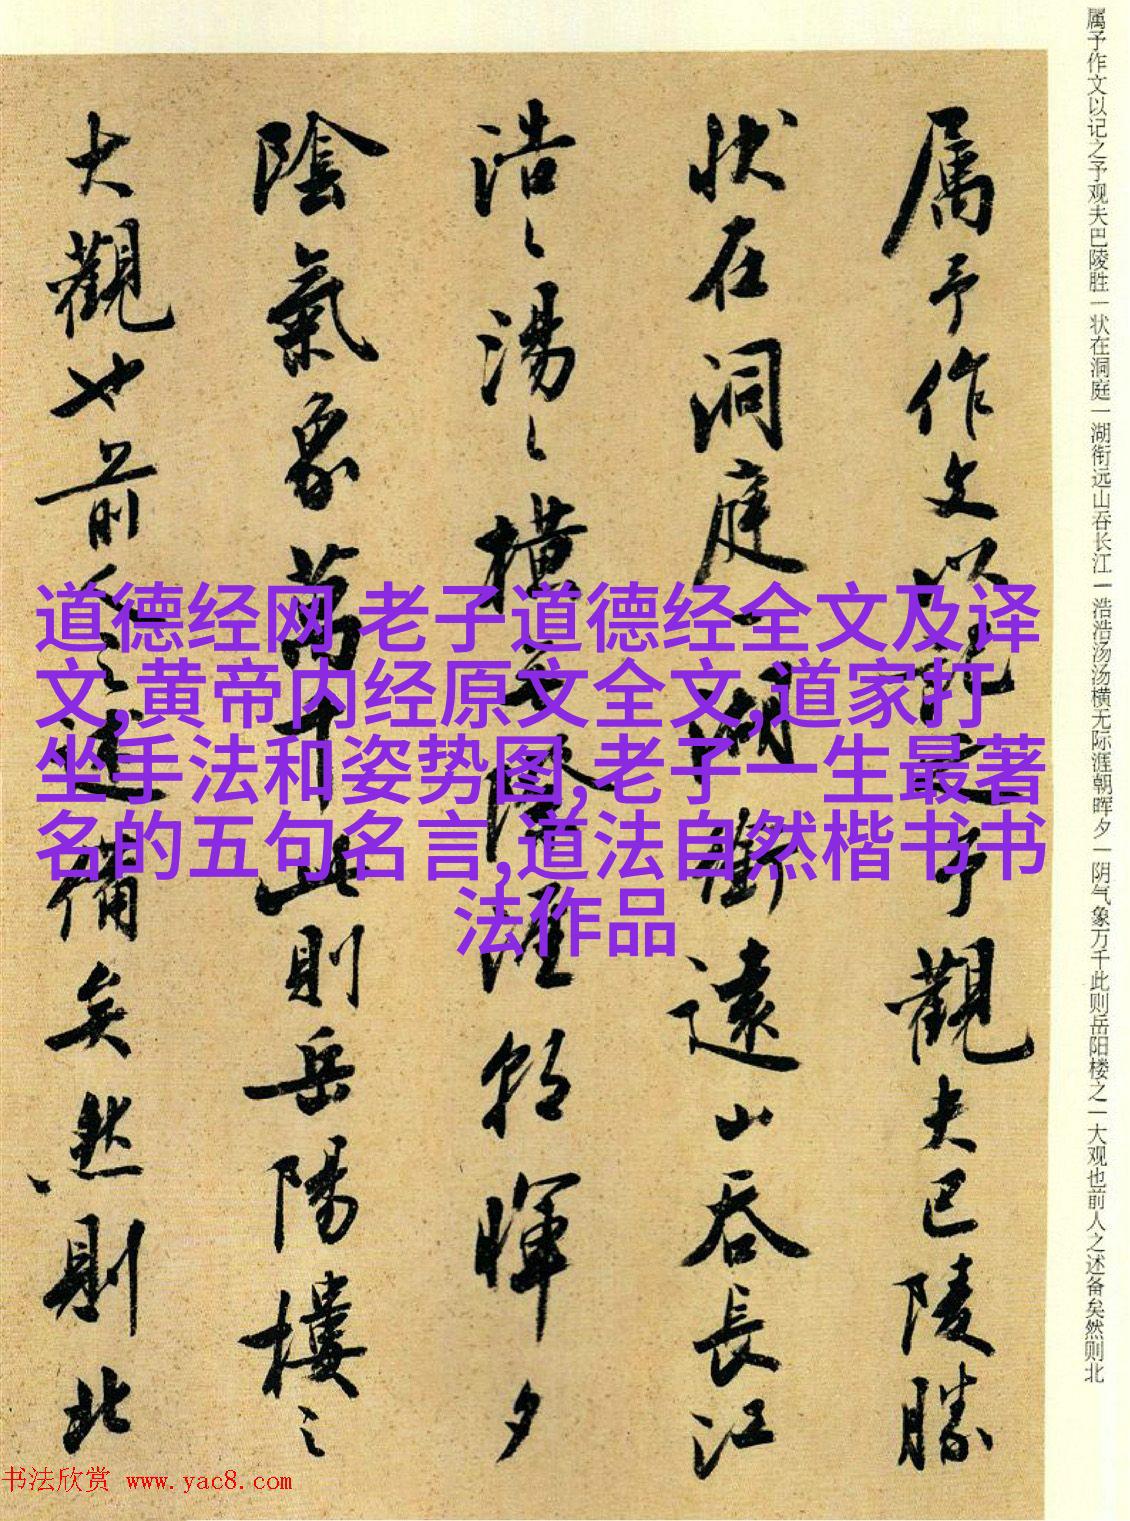 属予作文以记之予观夫巴陵胜一状在洞庭一湖衔远山吞长江一浩浩汤汤横无际涯朝晖夕一阴气象万千此则岳阳楼之一大观也前人之述备矣然则北
属予作文以记之予觀夫巴陵勝
状在洞庭一湖銜遠山吞長江
浩〻湯〻横无际涯朝暉夕
陰氣象萬千此則岳陽樓之
大觀也前人之述備矣然則北
道德经网 老子道德经全文及译
文,黄帝内经原文全文,道家打
坐手法和姿势图,老子一生最著
名的五句名言,道法自然楷书书
法作品
书法欣赏 www.yac8.com